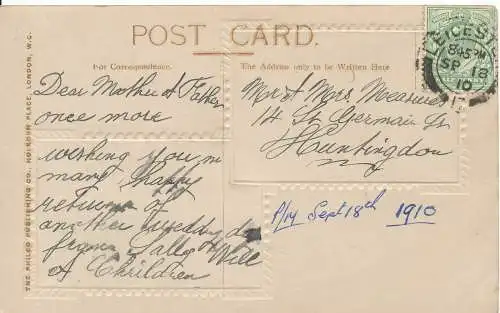 POST CARD.
For Correspondence.
The Address only to be Written Here
THE PHILCO PUBLISHING CO. HOLBORN PLACE, LONDON, W.C.
Dear Mother & Father
once more
wishing you m
many happy
returns of
another wedding da
from Sally & Will
& Children
Mr & Mrs Measures
14 St Germain St
Huntingdon
LEICES
8.45 PM
SP 18
10
P/M Sept 18th 1910